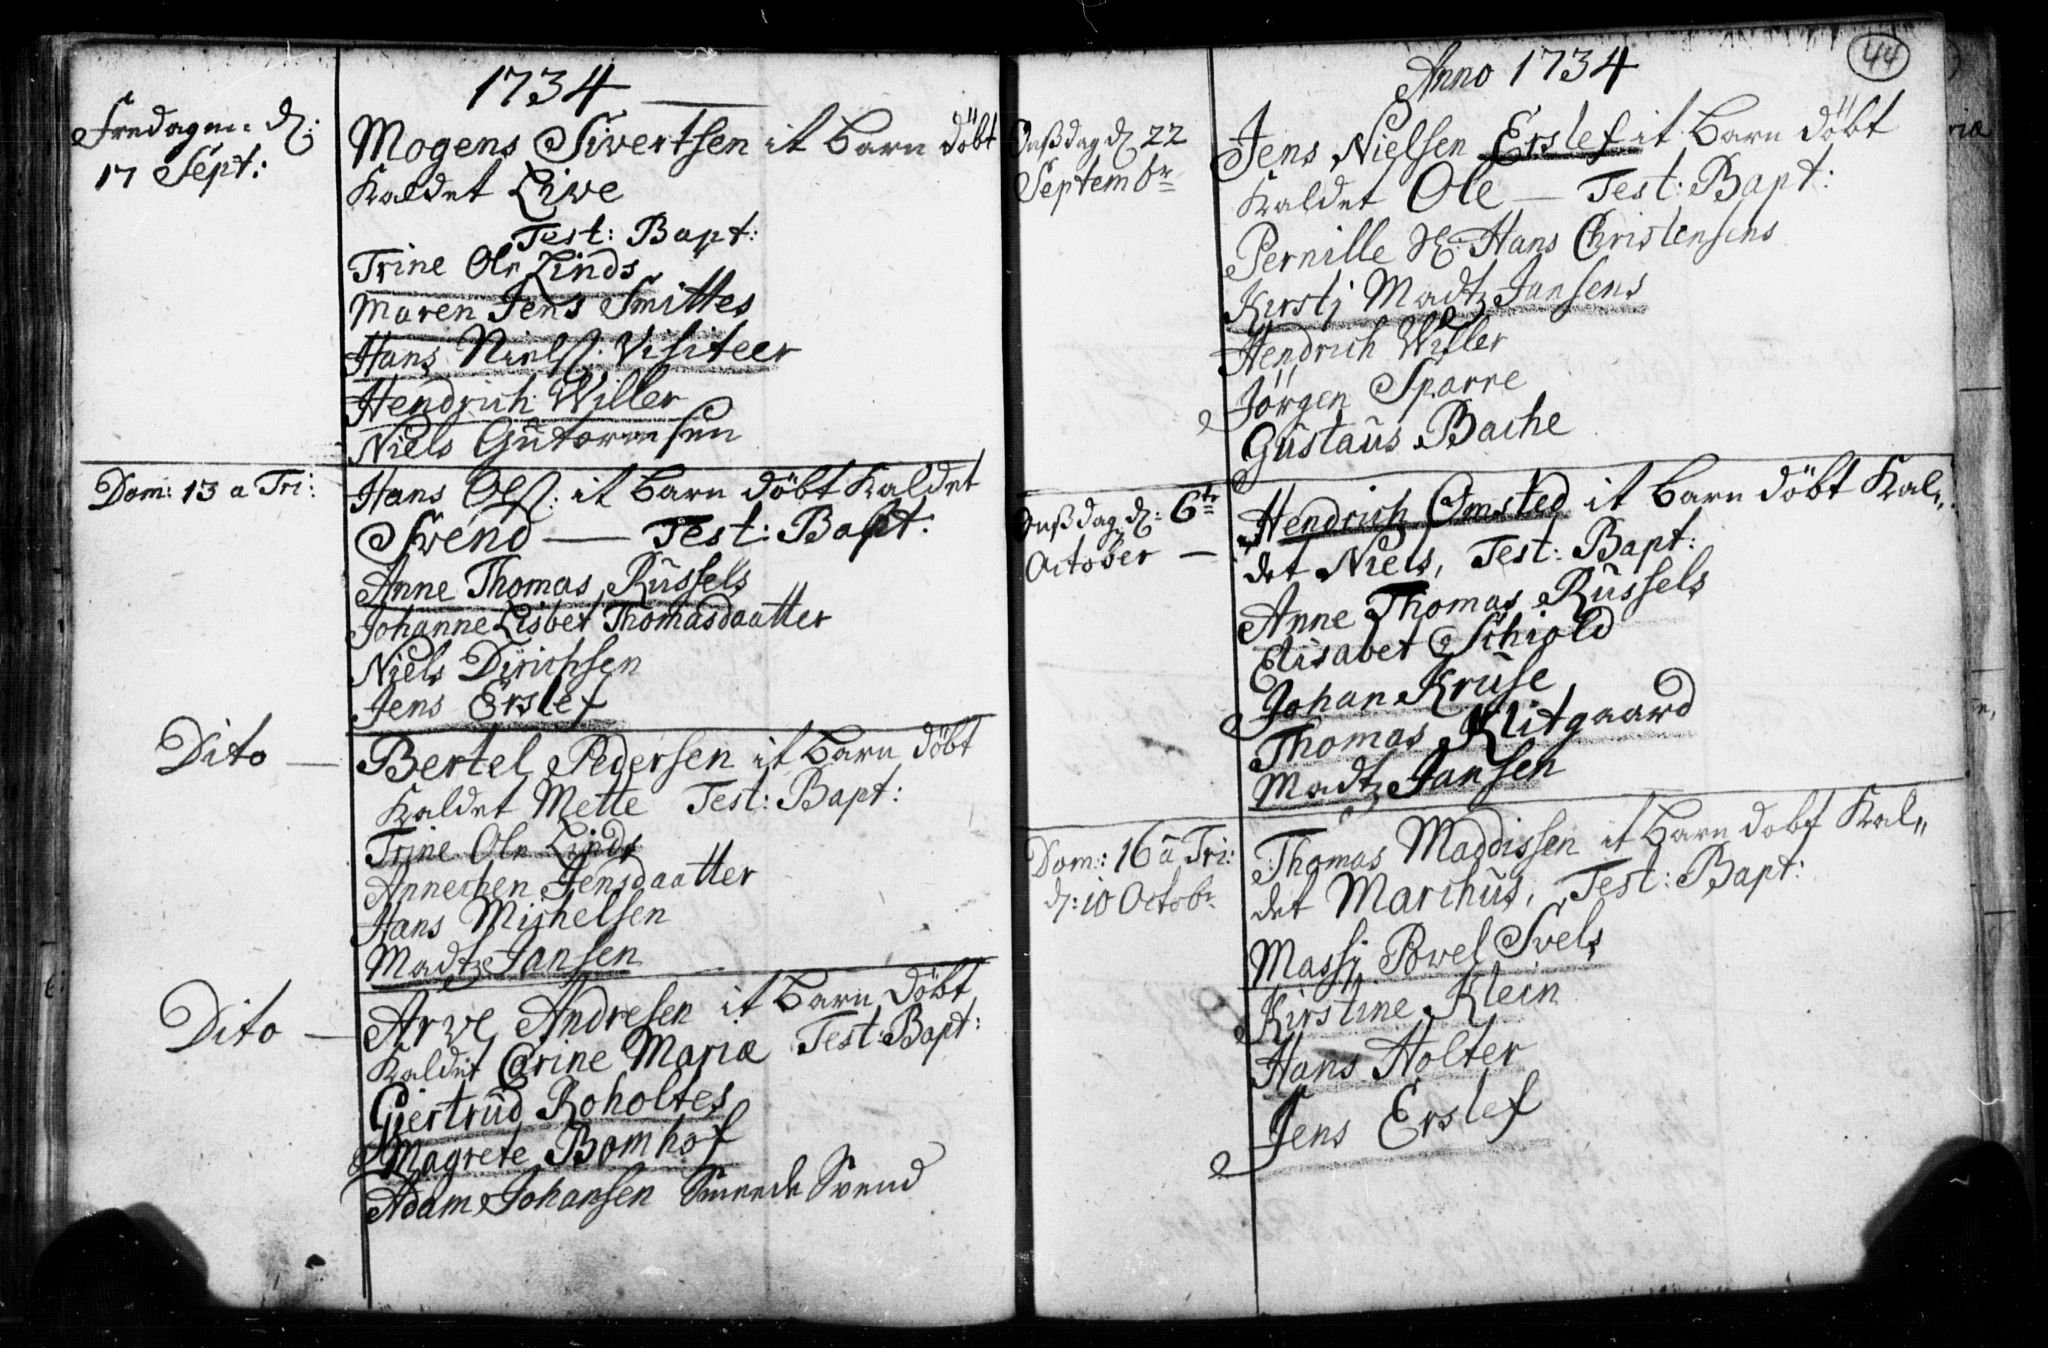 1734
Fredagen d:
17 Sept:
Mogens Sivertsen it barn döbt
Kaldet Live
Test: Bapt:
Trine Ole Linds
Maren Jens Smittes
Hans Niels: Visiteer
Hendrich Willer
Niels Gutormsen
Dom: 13 a Tri:
Hans Ols: it barn döbt Kaldet
Svend — Test: Bapt:
Anne Thomas Russels
Johanne Lisbet Thomasdaatter
Niels Dirichsen
Jens Erslef
Dito —
Bertel Pedersen it barn döbt
Kaldet Mette Test: Bapt:
Trine Ole Linds
Annechen Jensdaatter
Hans Michelsen
Madtz Jansen
Dito —
Arve Andresen it barn döbt
Kaldet Carine Maria Test: Bapt:
Giertrud Roholtes
Magrete Bomhof
Adam Johansen Smede Svend
44
Anno 1734
Onßdag d: 22
Septembr
Jens Nielsen Erslef it barn döbt
Kaldet Ole — Test: Bapt:
Pernille Sl: Hans Christensens
Kirstj Madtz Jansens
Hendrich Willer
Jörgen Sparre
Gustaus Bache
Onßdag d: 6te
October —
Hendrich Omsted it barn döbt Kal„
det Niels, Test: Bapt:
Anne Thomas Russels
Elisabet Schiold
Johan Kruse
Thomas Klitgaard
Madtz Jansen
Dom: 16 a Tri:
d: 10 Octobr
Thomas Maddissen it barn dobt Kal„
det Marchus, Test: Bapt:
Massj Powel Svels
Kirstine Klein
Hans Holter
Jens Erslef